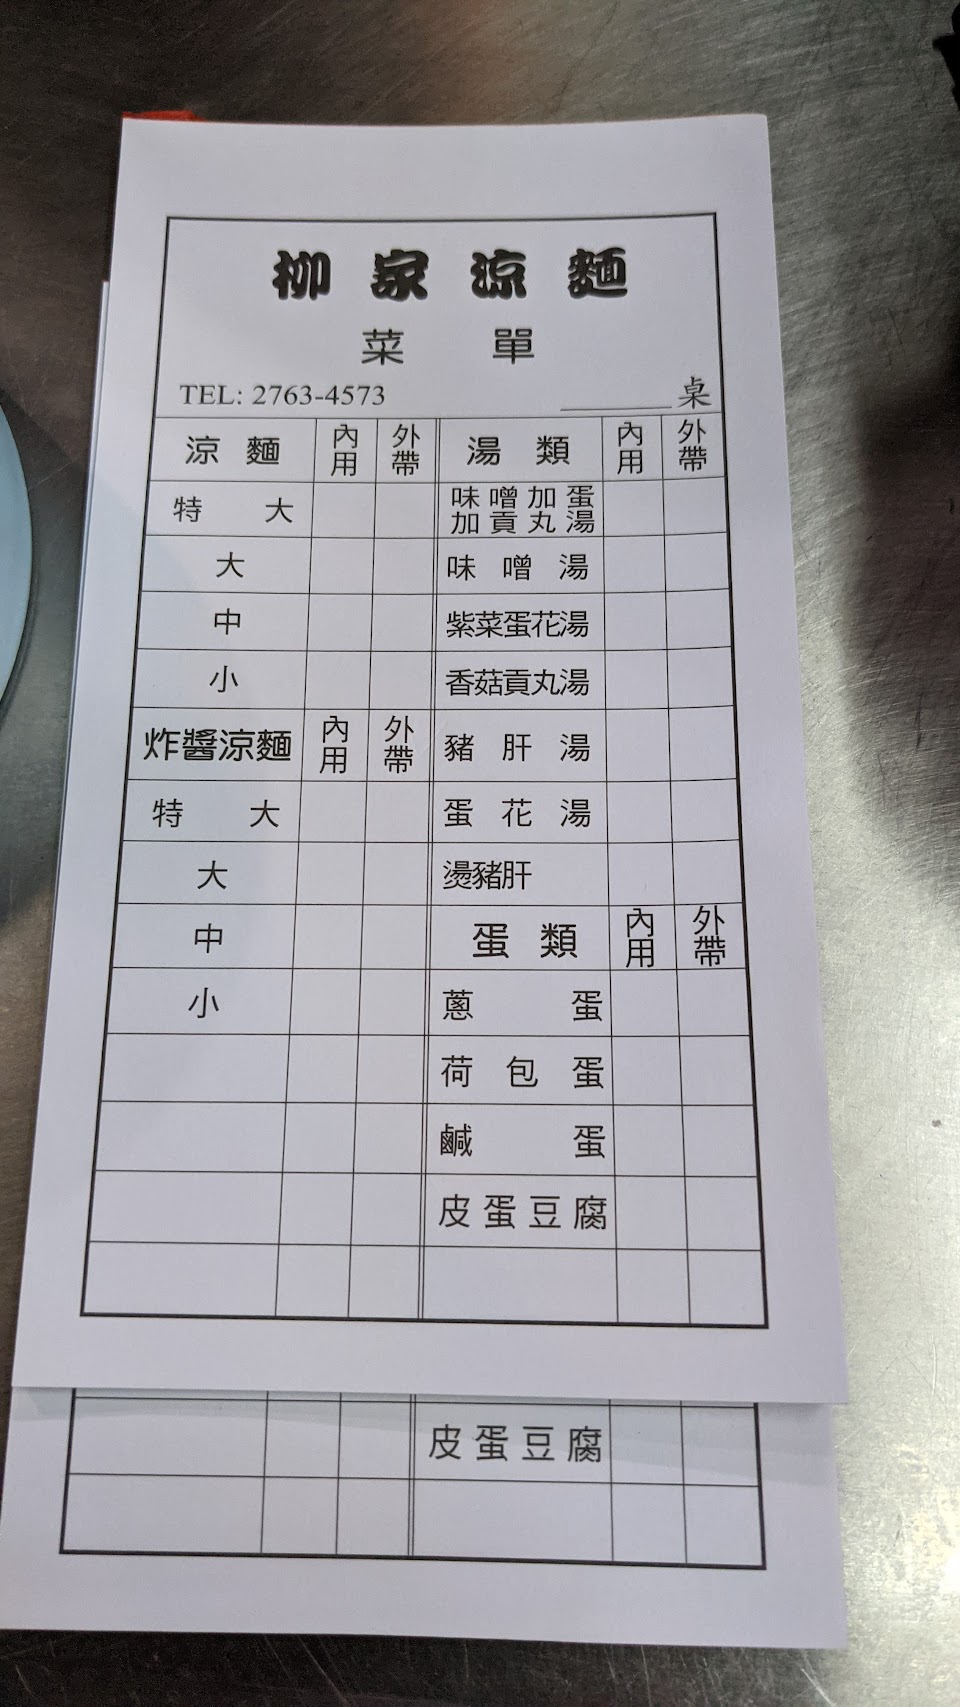 柳家涼麵
菜單
TEL: 2763-4573 ________桌
涼麵 內用 外帶 湯類 內用 外帶
特大 味噌加蛋加貢丸湯
大 味噌湯
中 紫菜蛋花湯
小 香菇貢丸湯
炸醬涼麵 內用 外帶 豬肝湯
特大 蛋花湯
大 燙豬肝
中 蛋類 內用 外帶
小 蔥蛋
荷包蛋
鹹蛋
皮蛋豆腐
皮蛋豆腐